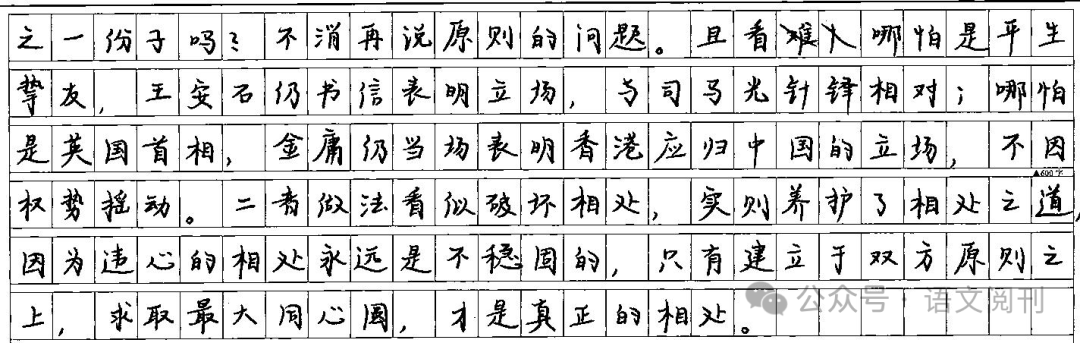 之一份子吗？不消再说原则的问题。且看难人哪怕是平生
挚友，王安石仍书信表明立场，与司马光针锋相对；哪怕
是英国首相，金庸仍当场表明香港应归中国的立场，不因
▲600字
权势摇动。二者做法看似破坏相处，实则养护了相处之道，
因为违心的相处永远是不稳固的，只有建立于双方原则之
上，求取最大同心圆，才是真正的相处。
公众号 语文阅刊